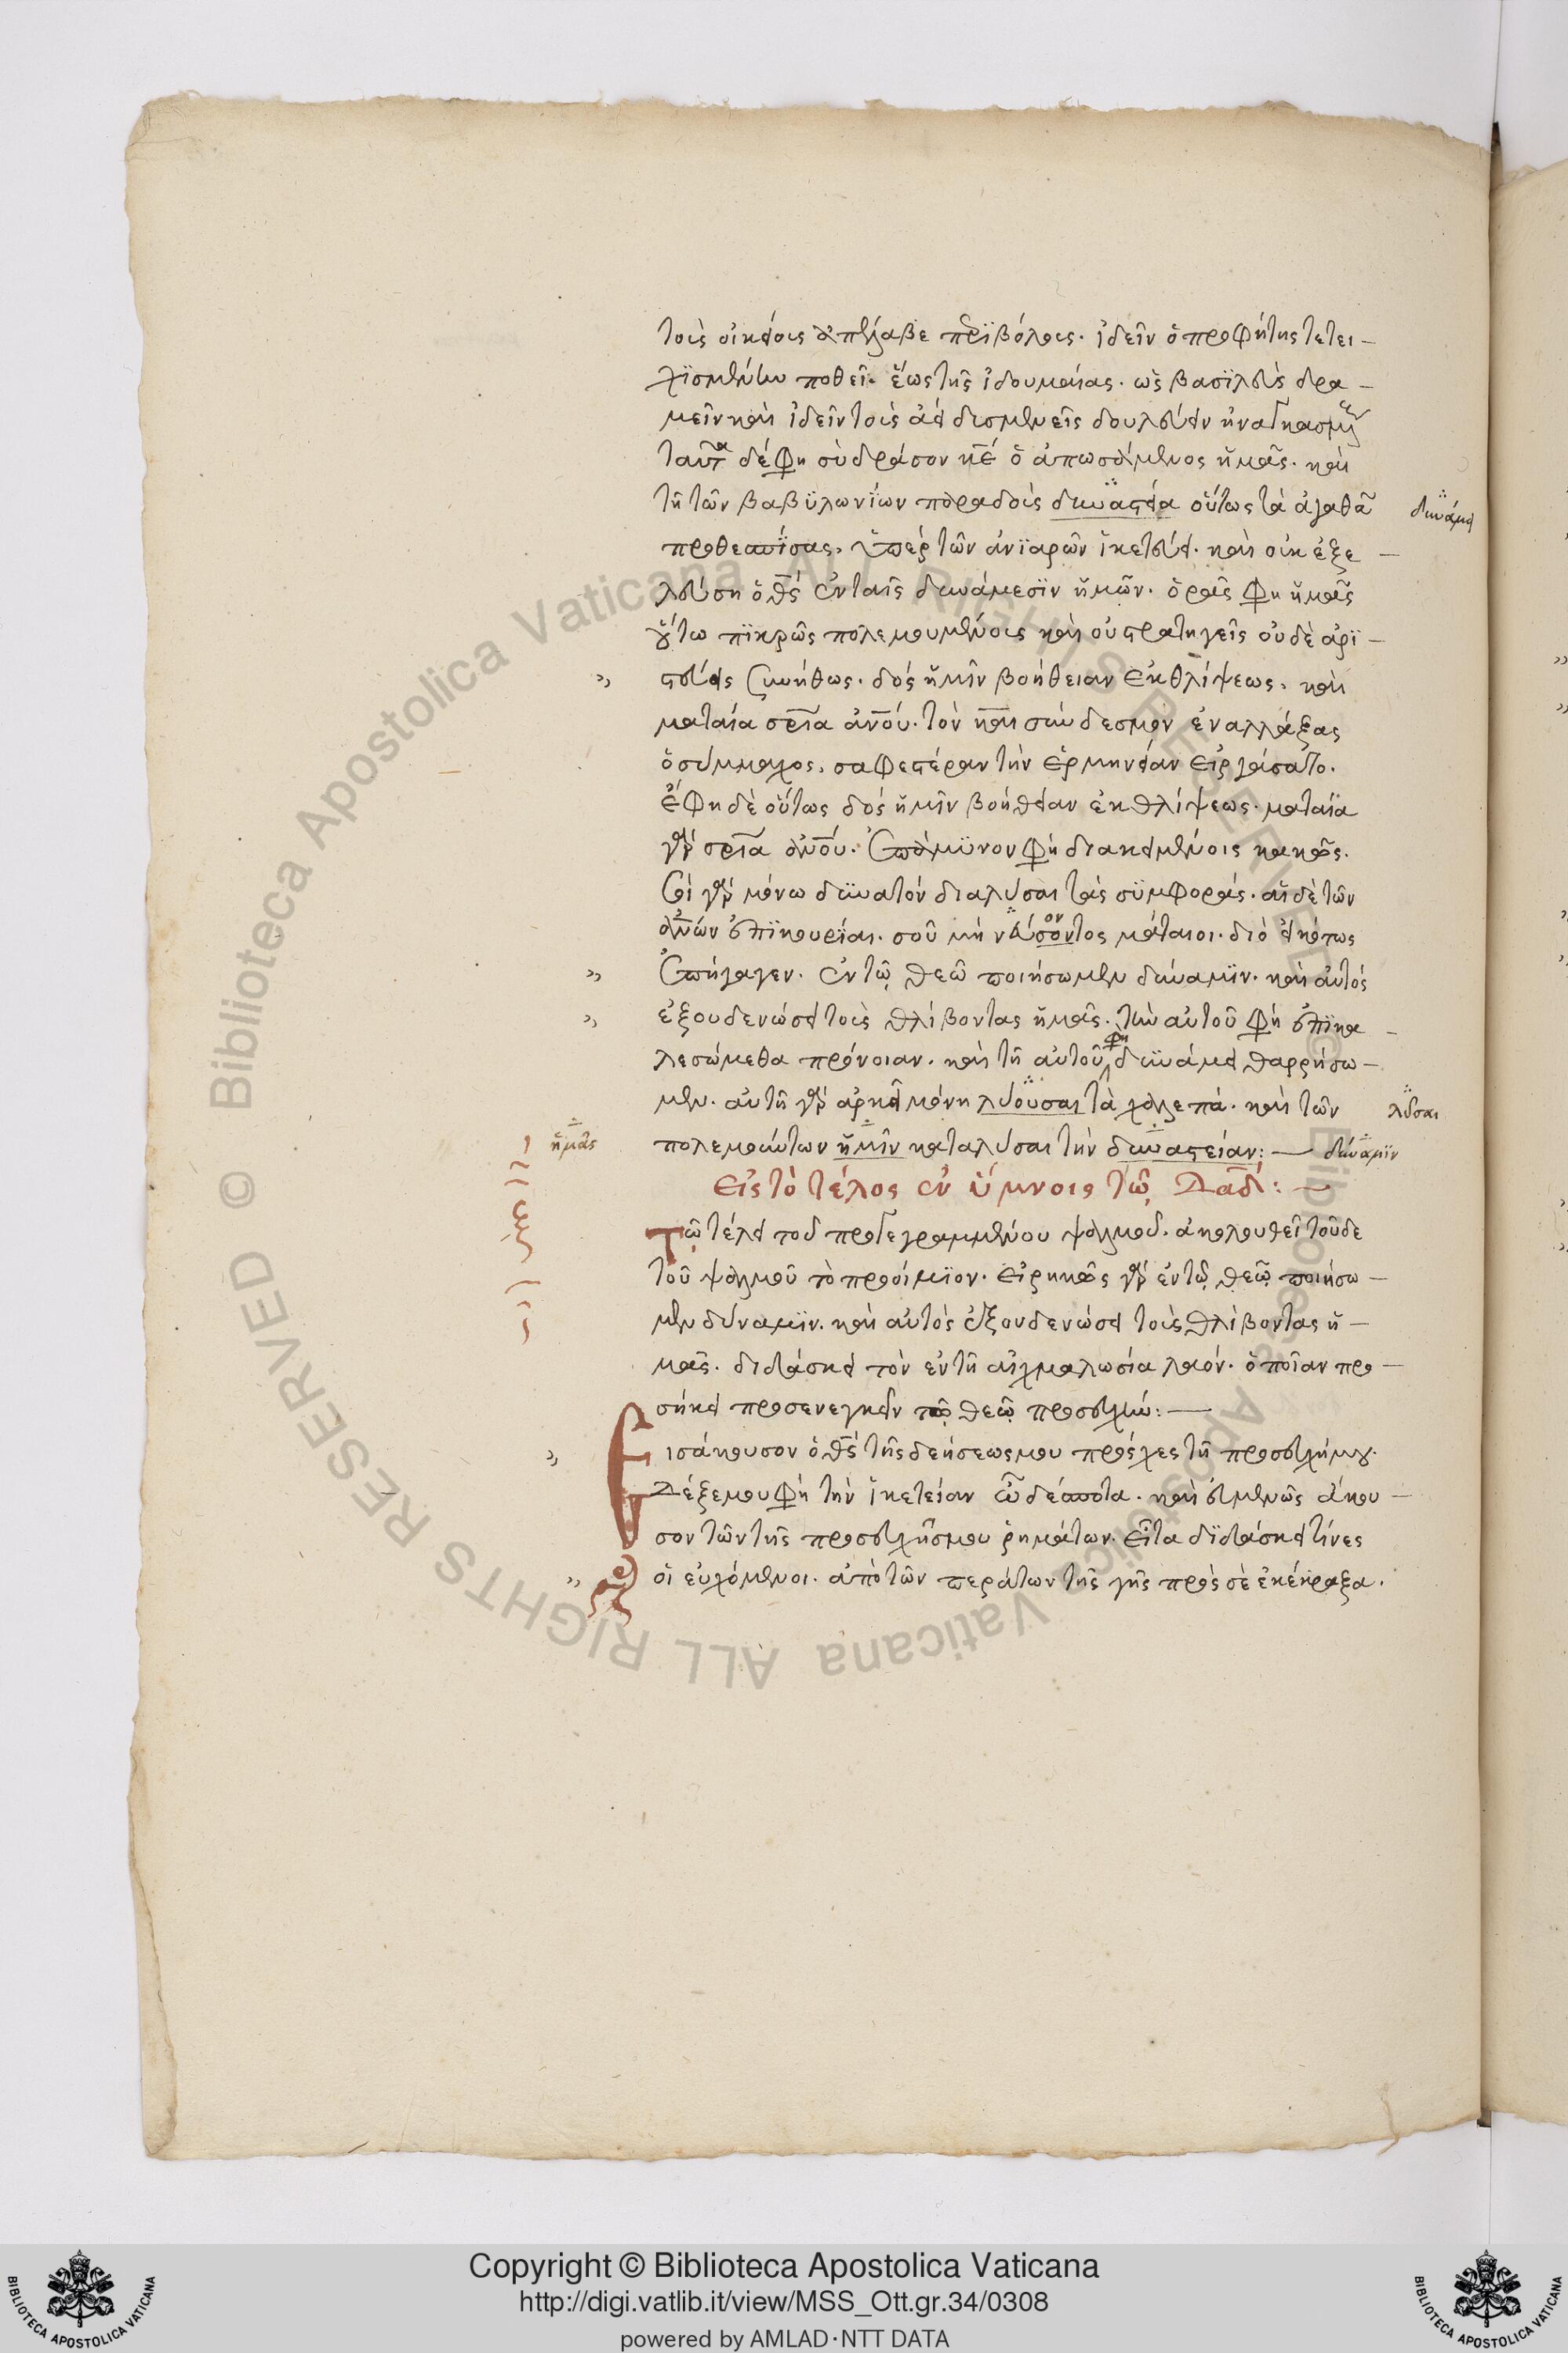 τοὺς οἰκείους ἀπέλαβε περιβόλους. ἰδεῖν ὁ προφήτης τετει-
χισμένην ποθεῖ. ἕως τῆς ἰδουμαίας. ὡς βασιλεὺς δρα-
μεῖν καὶ ἰδεῖν τοὺς ἀεὶ δυσμενεῖς δουλεύειν ἠναγκασμέ
ταῦτα δέ φη σὺ δράσον κ̅ε̅ ὁ ἀπωσάμενος ἡμᾶς. καὶ
τῇ τῶν βαβυλωνίων παραδοὺς δυναστεία οὕτως τὰ ἀγαθὰ
δυνάμει
προθεσπίσας, ὑπὲρ τῶν ἀνιαρῶν ἱκετεύει. καὶ οὐκ ἐξε-
λεύση ὁ θ̅ς̅ ἐν ταῖς δυνάμεσιν ἡμῶν. ὁρᾶς φη ἡμᾶς
οὕτω πικρῶς πολεμουμένους καὶ οὐ στρατηγεῖς οὐδὲ ἀρι-
στεύεις συνήθως. δὸς ἡμῖν βοήθειαν ἐκ θλίψεως, καὶ
ματαία σ̅ρ̅ι̅α ἀν̅ο̅υ̅. τὸν καὶ σύνδεσμον ἐναλλάξας
ὁ σύμμαχος, σαφεστέραν τὴν ἑρμηνείαν εἰργάσατο.
ἔφη δὲ οὕτως δὸς ἡμῖν βοήθειαν ἐκ θλίψεως. ματαία
γὰρ σ̅ρ̅ι̅α ἀν̅ο̅υ̅. ἐπάμυνον φη διακειμένοις κακῶς.
σοὶ γὰρ μόνω δυνατὸν διαλύσαι τὰς συμφοράς. αἱ δὲ τῶν
ἀν̅ῶν ἐπικουρίαι. σοῦ μὴ νεύσοντος μάταιοι. διὸ εἰκότως
ἐπήγαγεν. ἐν τῷ θεῷ ποιήσωμεν δύναμιν. καὶ αὐτὸς
ἐξουδενώσει τοὺς θλίβοντας ἡμᾶς. τὴν αὐτοῦ φη ἐπικα-
λεσώμεθα πρόνοιαν. καὶ τῇ αὐτοῦ φη δυνάμει θαρρήσω-
μεν. αὐτὴ γὰρ ἀρκεῖ μόνη λύουσαι τὰ χαλεπά. καὶ τῶν
λῦσαι
ἡμᾶς
πολεμούντων ἡμῖν καταλύσαι τὴν δυναστείαν:—
δύναμιν
Εἰς τὸ τέλος ἐν ὕμνοις τῷ Δα̅δ̅:—
Τῷ τέλει τοῦ προγεγραμμένου ψαλμοῦ. ἀκολουθεῖ τοῦδε
τοῦ ψαλμοῦ τὸ προοίμιον. εἰρηκὼς γὰρ ἐν τῷ θεῷ ποιήσω-
μεν δύναμιν. καὶ αὐτὸς ἐξουδενώσει τοὺς θλίβοντας ἡ-
μᾶς. διδάσκει τὸν ἐν τῇ αἰχμαλωσία λαόν. ὁποῖαν προ-
σήκει προσενεγκεῖν τῷ θεῷ προσευχήν:—
Εἰσάκουσον ὁ θ̅ς̅ τῆς δεήσεώς μου πρόσχες τῇ προσευχῇ μου.
Δέξε μου φη τὴν ἱκετείαν ὦ δέσποτα. καὶ εὐμενῶς ἄκου-
σον τῶν τῆς προσευχῆς μου ῥημάτων. εἶτα διδάσκει τίνες
οἱ εὐχόμενοι. ἀπὸ τῶν περάτων τῆς γῆς πρὸς σὲ ἐκέκραξα.
© Biblioteca Apostolica Vaticana ALL RIGHTS RESERVED
© Biblioteca Apostolica Vaticana ALL RIGHTS RESERVED
Copyright © Biblioteca Apostolica Vaticana
http://digi.vatlib.it/view/MSS_Ott.gr.34/0308
powered by AMLAD·NTT DATA
BIBLIOTECA APOSTOLICA VATICANA
BIBLIOTECA APOSTOLICA VATICANA